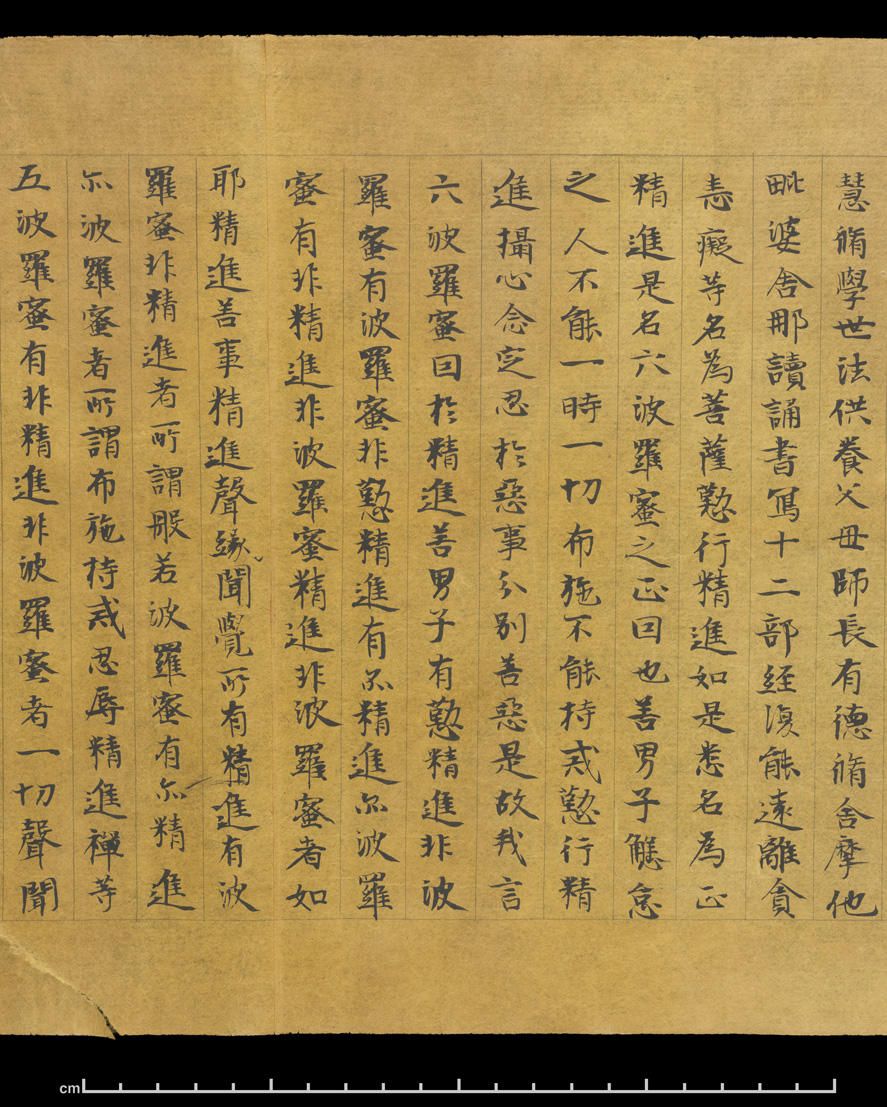 慧脩學世法供養父母師長有德脩舍摩他
毗婆舍那讀誦書寫十二部經復能遠離貪
恚癡等名為菩薩懃行精進如是悉名為正
精進是名六波羅蜜之正因也善男子懈怠
之人不能一時一切布施不能持戒懃行精
進攝心念定忍於惡事分別善惡是故我言
六波羅蜜因於精進善男子有懃精進非波
羅蜜有波羅蜜非懃精進有亦精進亦波羅
蜜有非精進非波羅蜜精進非波羅蜜者如
耶精進善事精進聲緣聞覺所有精進有波
羅蜜非精進者所謂般若波羅蜜有亦精進
亦波羅蜜者所謂布施持戒忍辱精進禪等
五波羅蜜有非精進非波羅蜜者一切聲聞
cm